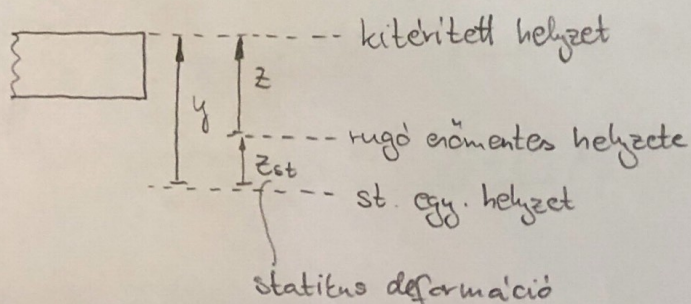 kitérített helyzet
z
y
rugó erőmentes helyzete
zst
st. egy. helyzet
statikus deformáció